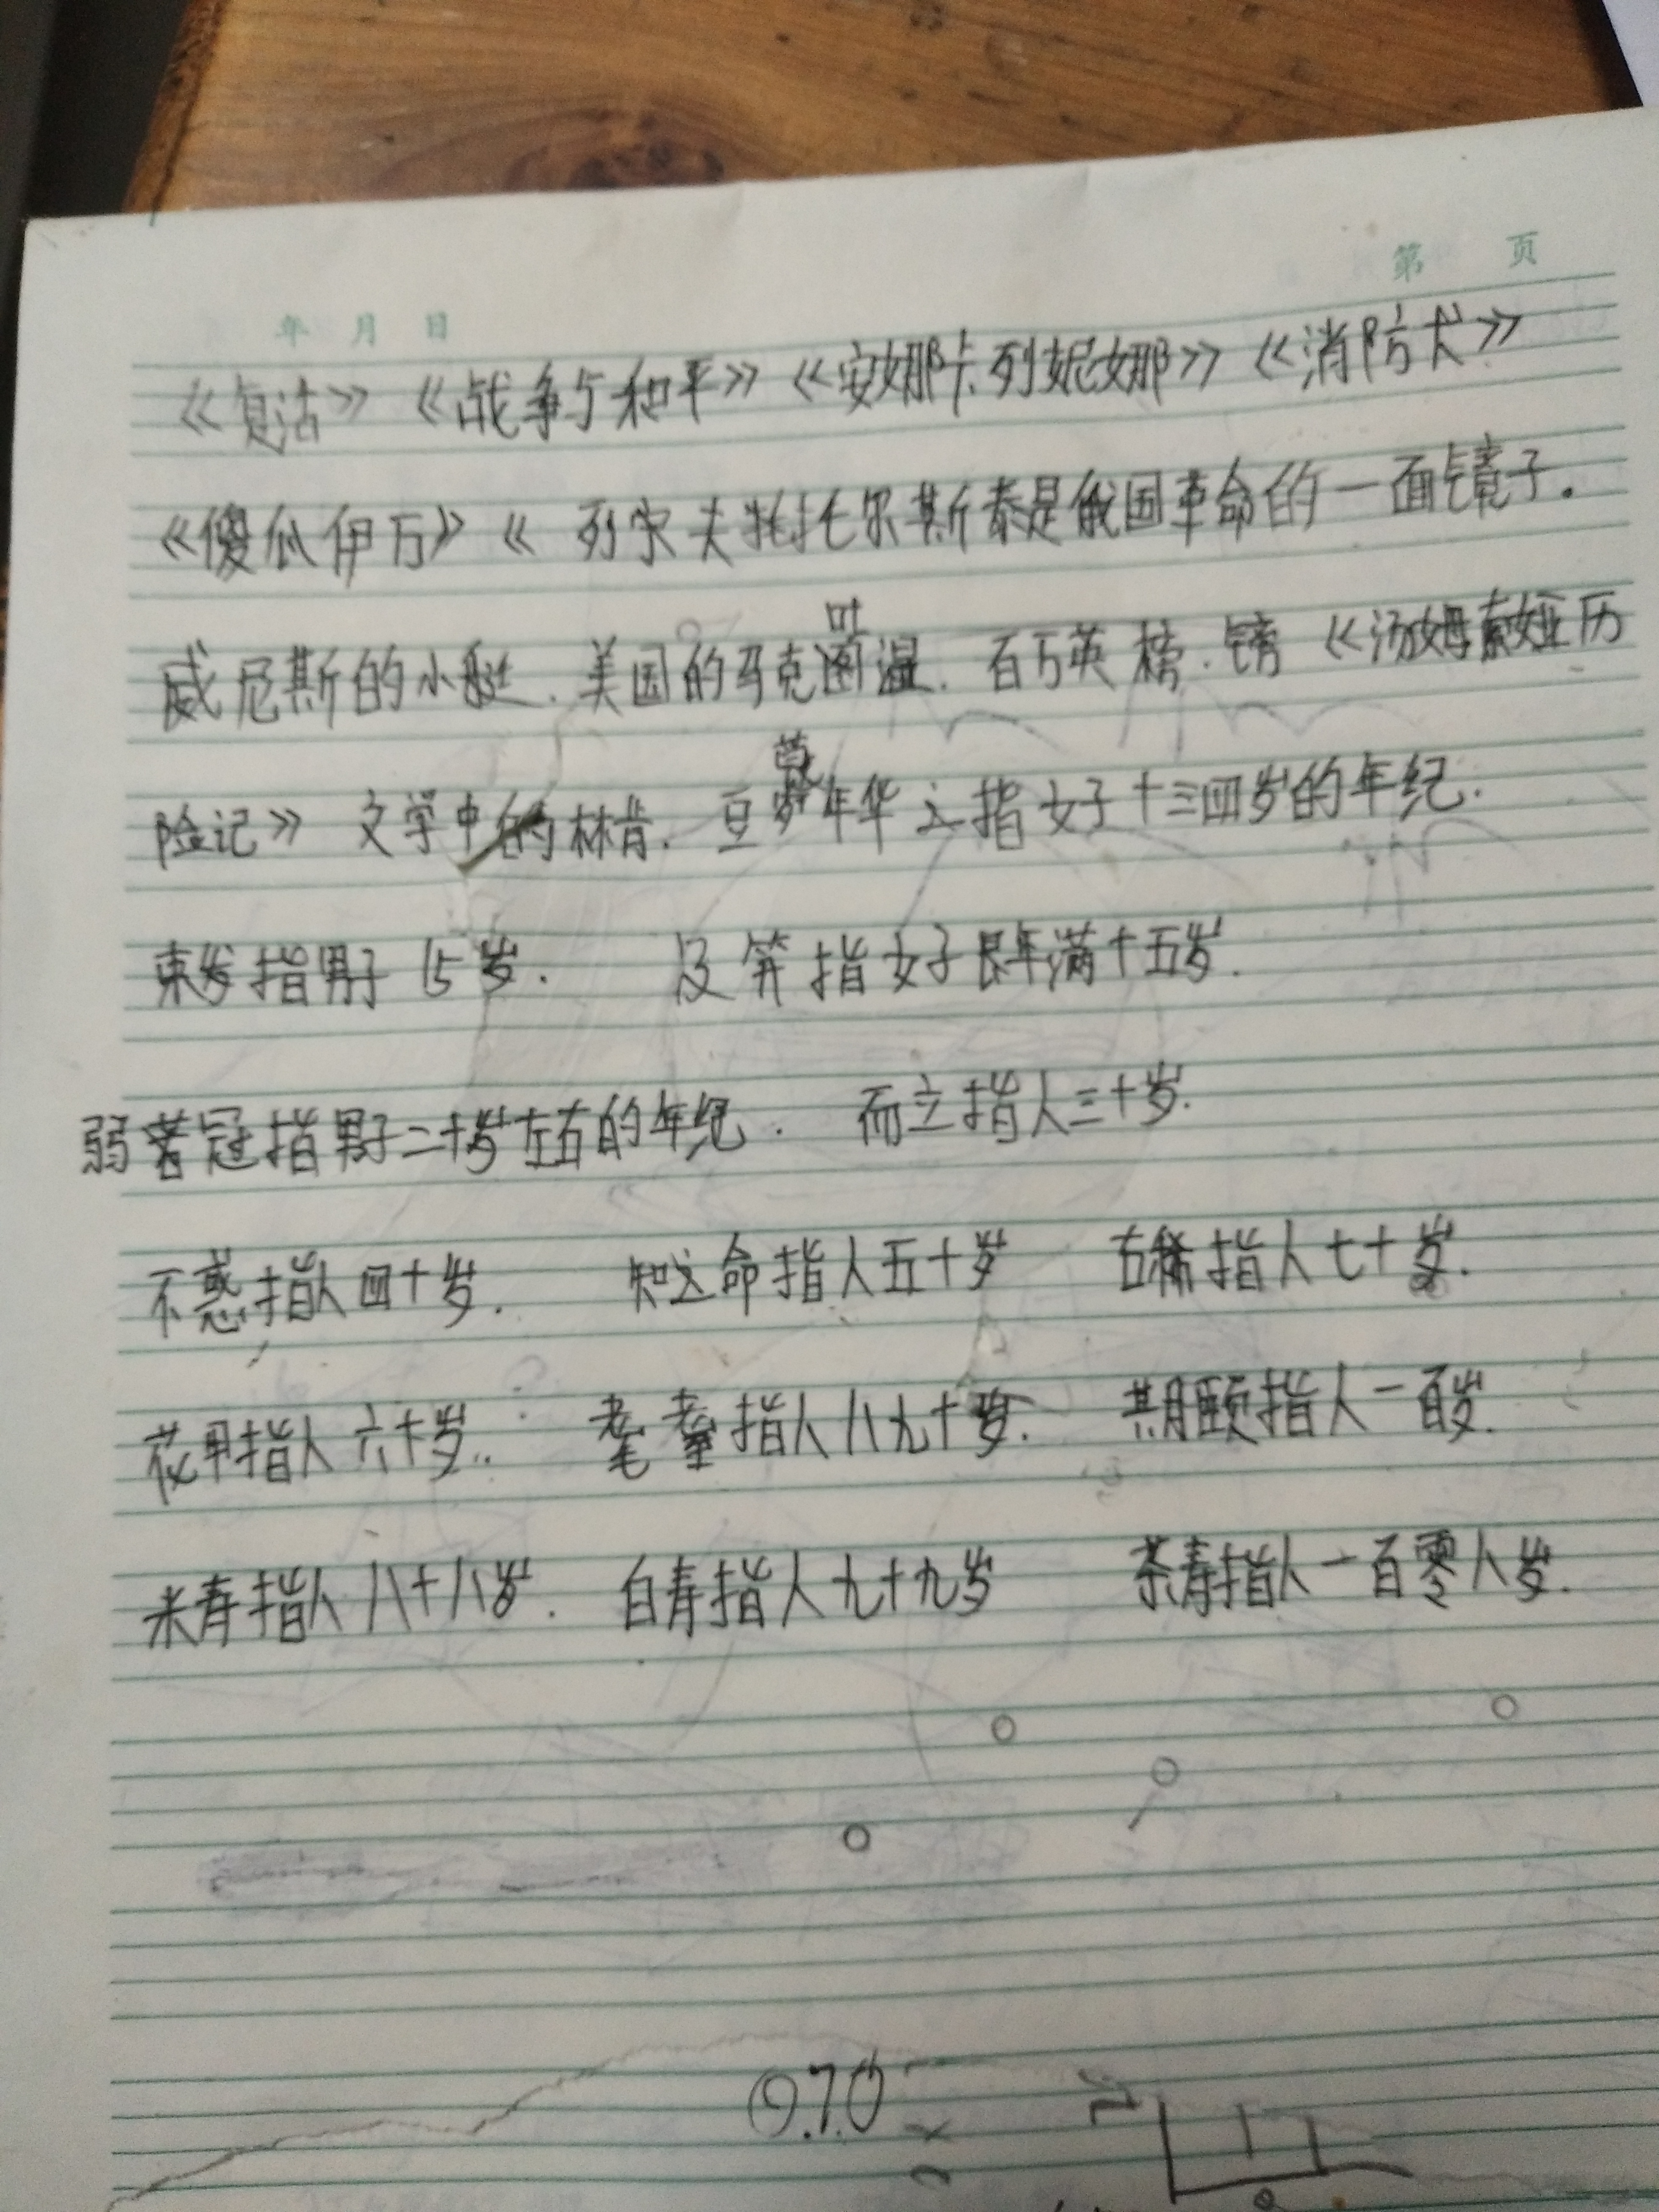 第 页
年 月 日
《复活》《战争与和平》《安娜卡列妮娜》《消防犬》
《傻瓜伊万》《 列宁夫托尔斯泰是俄国革命的一面镜子。
威尼斯的小艇. 美国的马克吐温. 百万英 榜. 镑 《汤姆索娅历
险记》 文学中的林肯. 豆蔻年华 指女子十三四岁的年纪.
束发指男子 15岁. 及笄指女子年满十五岁.
弱冠指男子二十岁左右的年纪. 而立指人三十岁.
不惑指人四十岁. 知命指人五十岁 古稀指人七十岁.
花甲指人六十岁.. 耄耋指人八九十岁. 期颐指人一百岁.
米寿指人八十八岁. 白寿指人九十九岁 茶寿指人一百零八岁.